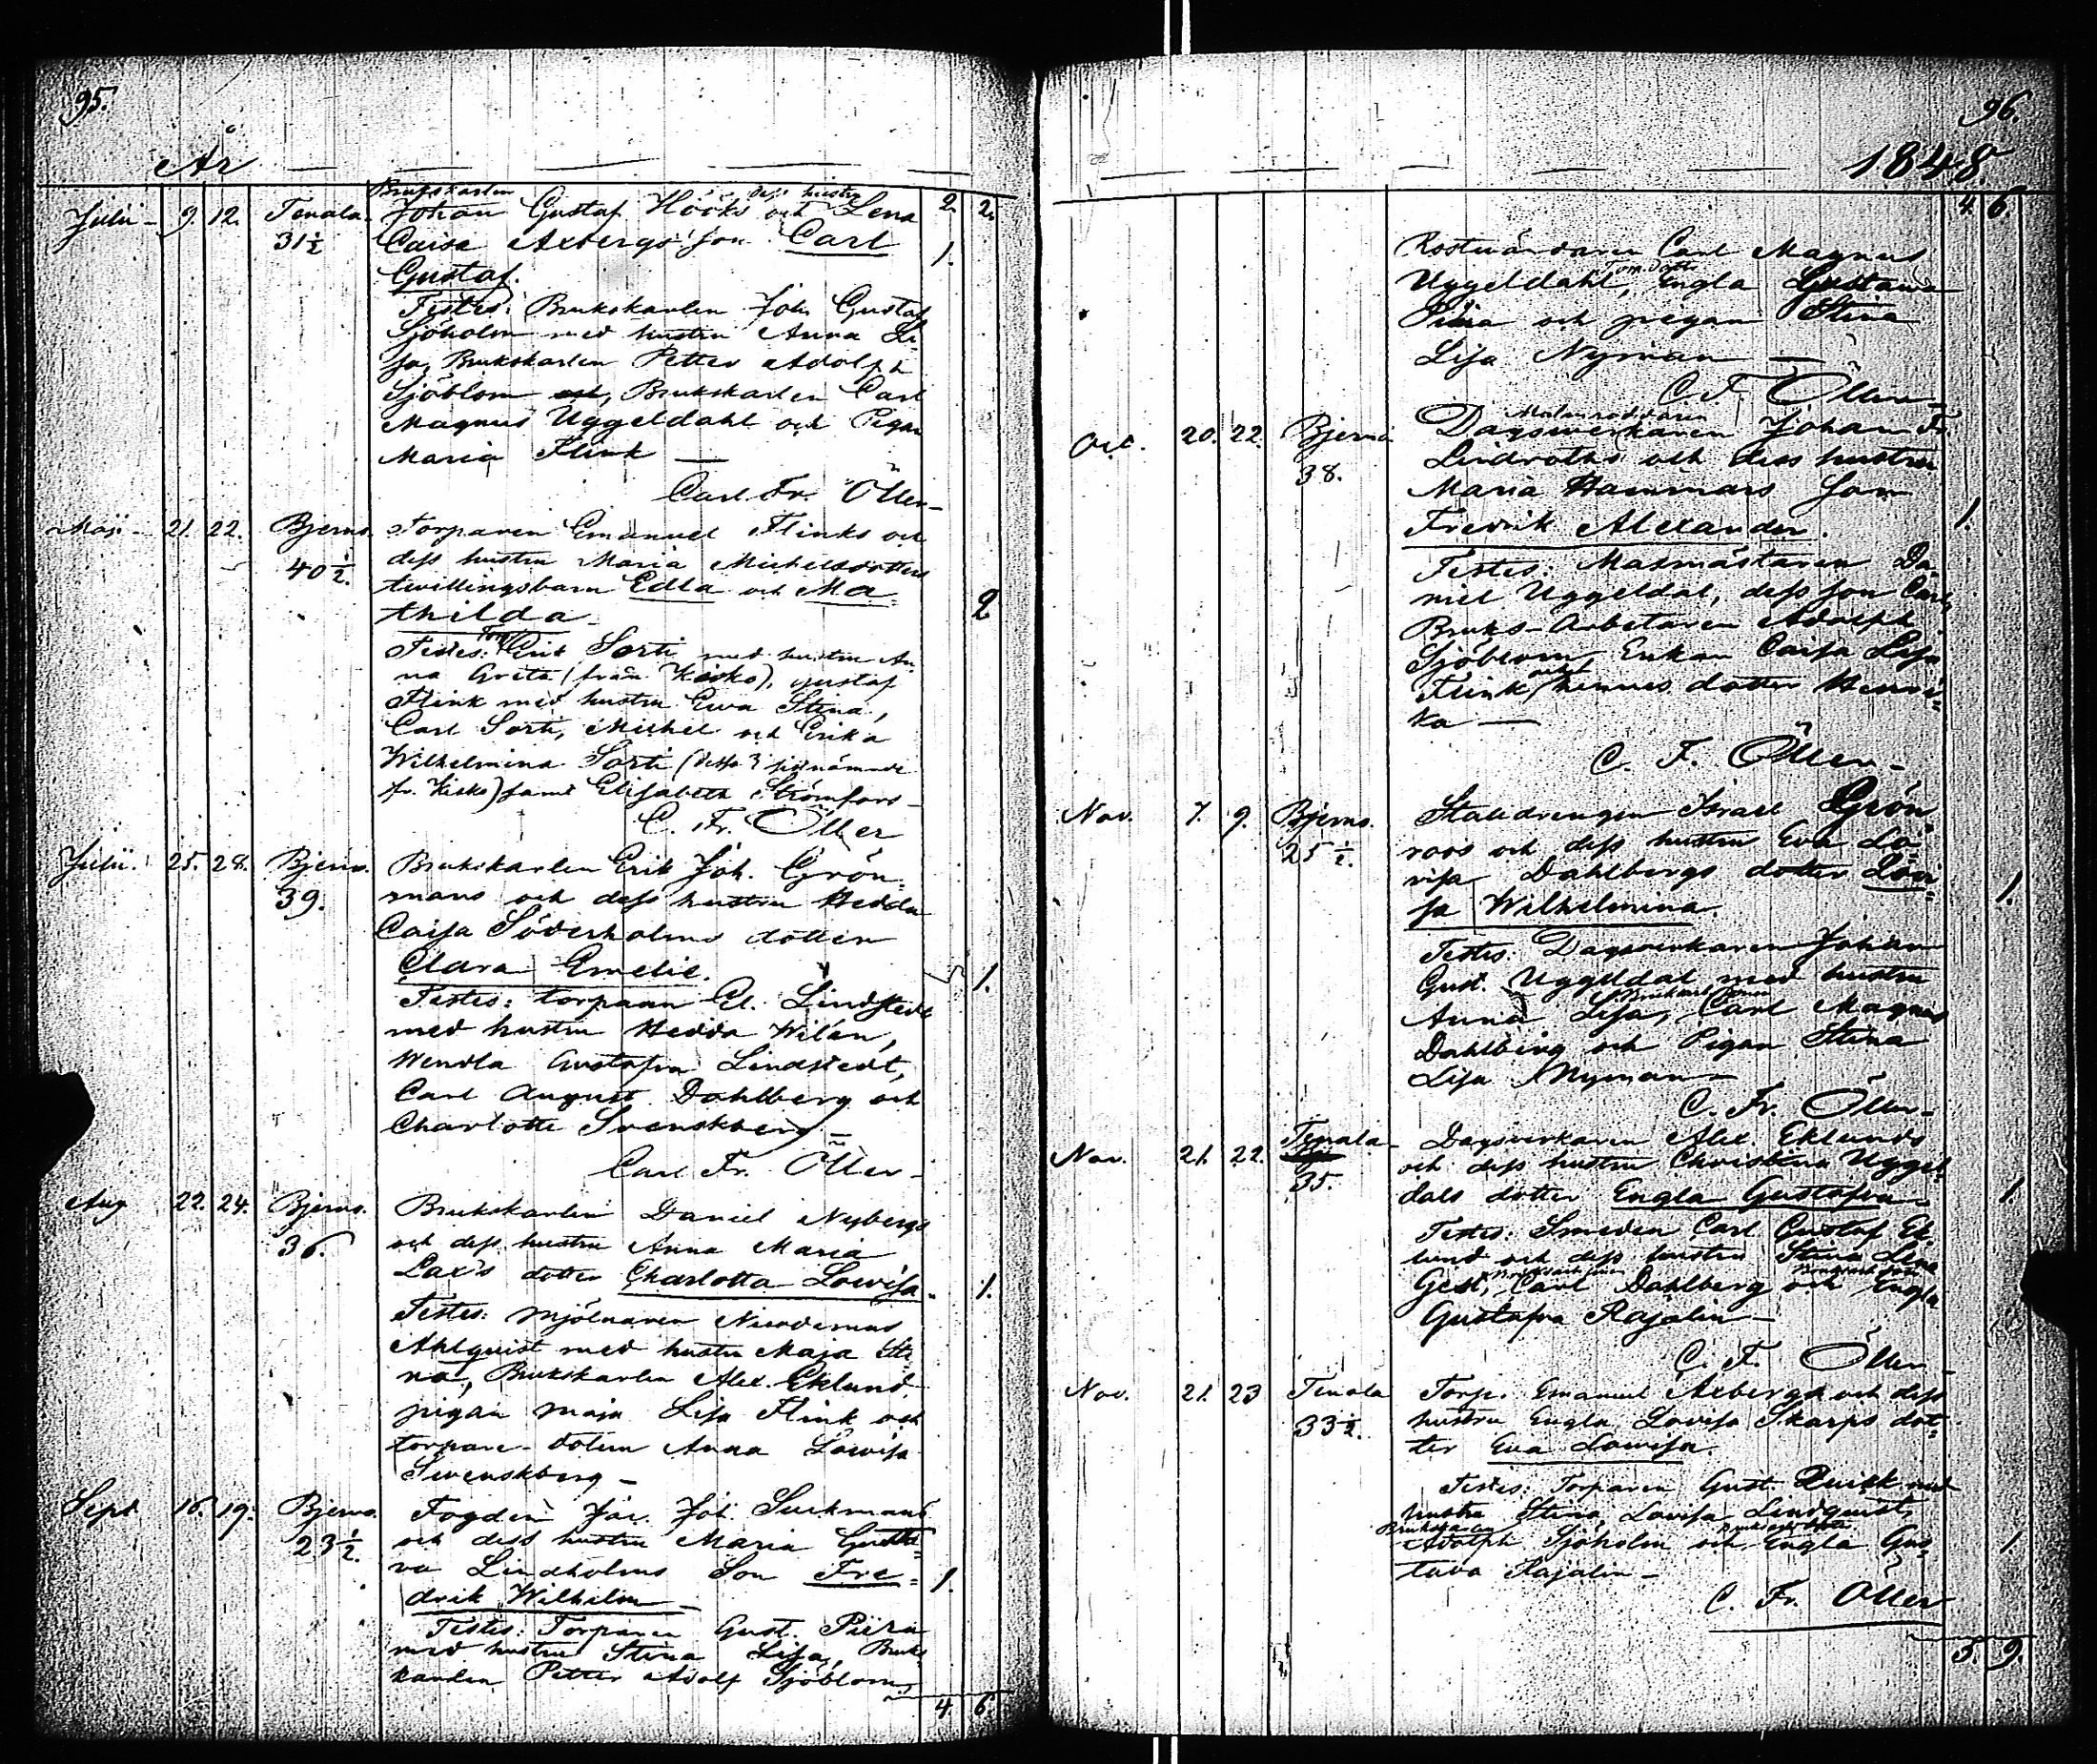 95.
År
2. 2.
Brukskarlen dess hustru
Julii 9. 12. Tenala. Johan Gustaf Hööks och Lena
31½ Caisa Axbergs son Carl 1.
Gustaf.
Testes: Brukskarlen Joh. Gustaf
Sjöholm med hustru Anna Li-
sa, Brukskarlen Petter Adolph
Sjöblom, Brukskarlen Carl
Magnus Uggeldahl och Pigan
Maria Flink —
Carl Fr. Öller
Maji 21. 22. Bjerno. Torparen Emanuel Flinks och
40½. dess hustru Maria Michelsdotters
twillingsbarn Edla och Ma= 2
thilda.
Testes: Erik Sorti med hustru An-
na Greta (från Kisko), Gustaf
Flink med hustru Ewa Stina,
Carl Sorti, Michel och Erika
Wilhelmina Sorti (desse 3 sistnämnde
fr. Kisko) samt Elisabeth Strömfors
C. Fr. Öller
Julii. 25. 28. Bjerno. Brukskarlen Erik Joh. Grön=
39. mans och dess hustru Hedda
Caisa Söderholms dotter
Clara Emelie. 1.
Testes: torparen El. Lindstedt
med hustru Hedda Wilén,
Wendla Gustafva Lindstedt,
Carl August Dahlberg och
Charlotte Svenskberg —
Carl Fr. Öller
Aug 22. 24. Bjerno. Brukskarlen Daniel Nybergs
36. och dess hustru Anna Maria
Lax's dotter Charlotta Lowisa. 1.
Testes: Mjölnaren Nicodemus
Ahlquist med hustru Maja Sti
na, Brukskarlen Alex. Eklund,
pigan Maja Lisa Flink och
torpare-dottern Anna Lowisa
Swenskberg —
Sept 16. 19. Bjerno. Fogden Jac. Joh. Suckmans
23½. och dess hustru Maria Gusta=
va Lindholms Son Fre= 1.
drik Wilhelm —
Testes: Torparen Gust. Piira
med hustru Stina Lisa, Bruks
karlen Petter Adolf Sjöblom,
4. 6.
96.
1848.
4. 6.
Rostwändaren Carl Magnus
Uggeldahl, Engla Gustawa
Piira och pigan Stina
Lisa Nyman —
C. F. Öller
Oct. 20. 22. Bjerno Dagsverkaren Johan Fr.
38. Lindroths och dess hustru
Maria Hammars son
Fredrik Alexander. 1.
Testes: Masmästaren Da-
niel Uggeldal, dess son Carl,
Bruks-Arbetaren Adolph
Sjöblom, Enkan Caisa Lisa
Flink och hennes dotter Henri=
ka —
C. F. Öller
Nov. 7. 9. Bjerno. Stalldrengen Israel Grön
25½. roos och dess hustru Eva Lo-
visa Dahlbergs dotter Lovi=
sa Wilhelmina. 1.
Testes: Dagsverkaren Johan
Gust. Uggeldal med hustru
Anna Lisa, Carl Magnus
Dahlberg och Pigan Stina
Lisa Nyman —
C. Fr. Öller
Nov. 21. 22. Tenala Dagsverkaren Alex. Eklunds
35. och dess hustru Christina Uggel
dals dotter Engla Gustafva 1.
Testes: Smeden Carl Gustaf Ek-
lund och dess hustru Stina Lena
Carl Dahlberg och Engla
Gustafva Rajalin —
C. F. Öller
Nov. 21. 23 Tenala Torp. Emanuel Axbergs och dess
33½. hustru Engla Lovisa Skarps dot=
ter Eva Lowisa.
Testes: Torparen Gust. Quick med
hustru Stina Lovisa Lindquist,
Adolph Sjöholm och Engla Gus= 1.
tava Rajalin —
C. Fr. Öller
5. 9.